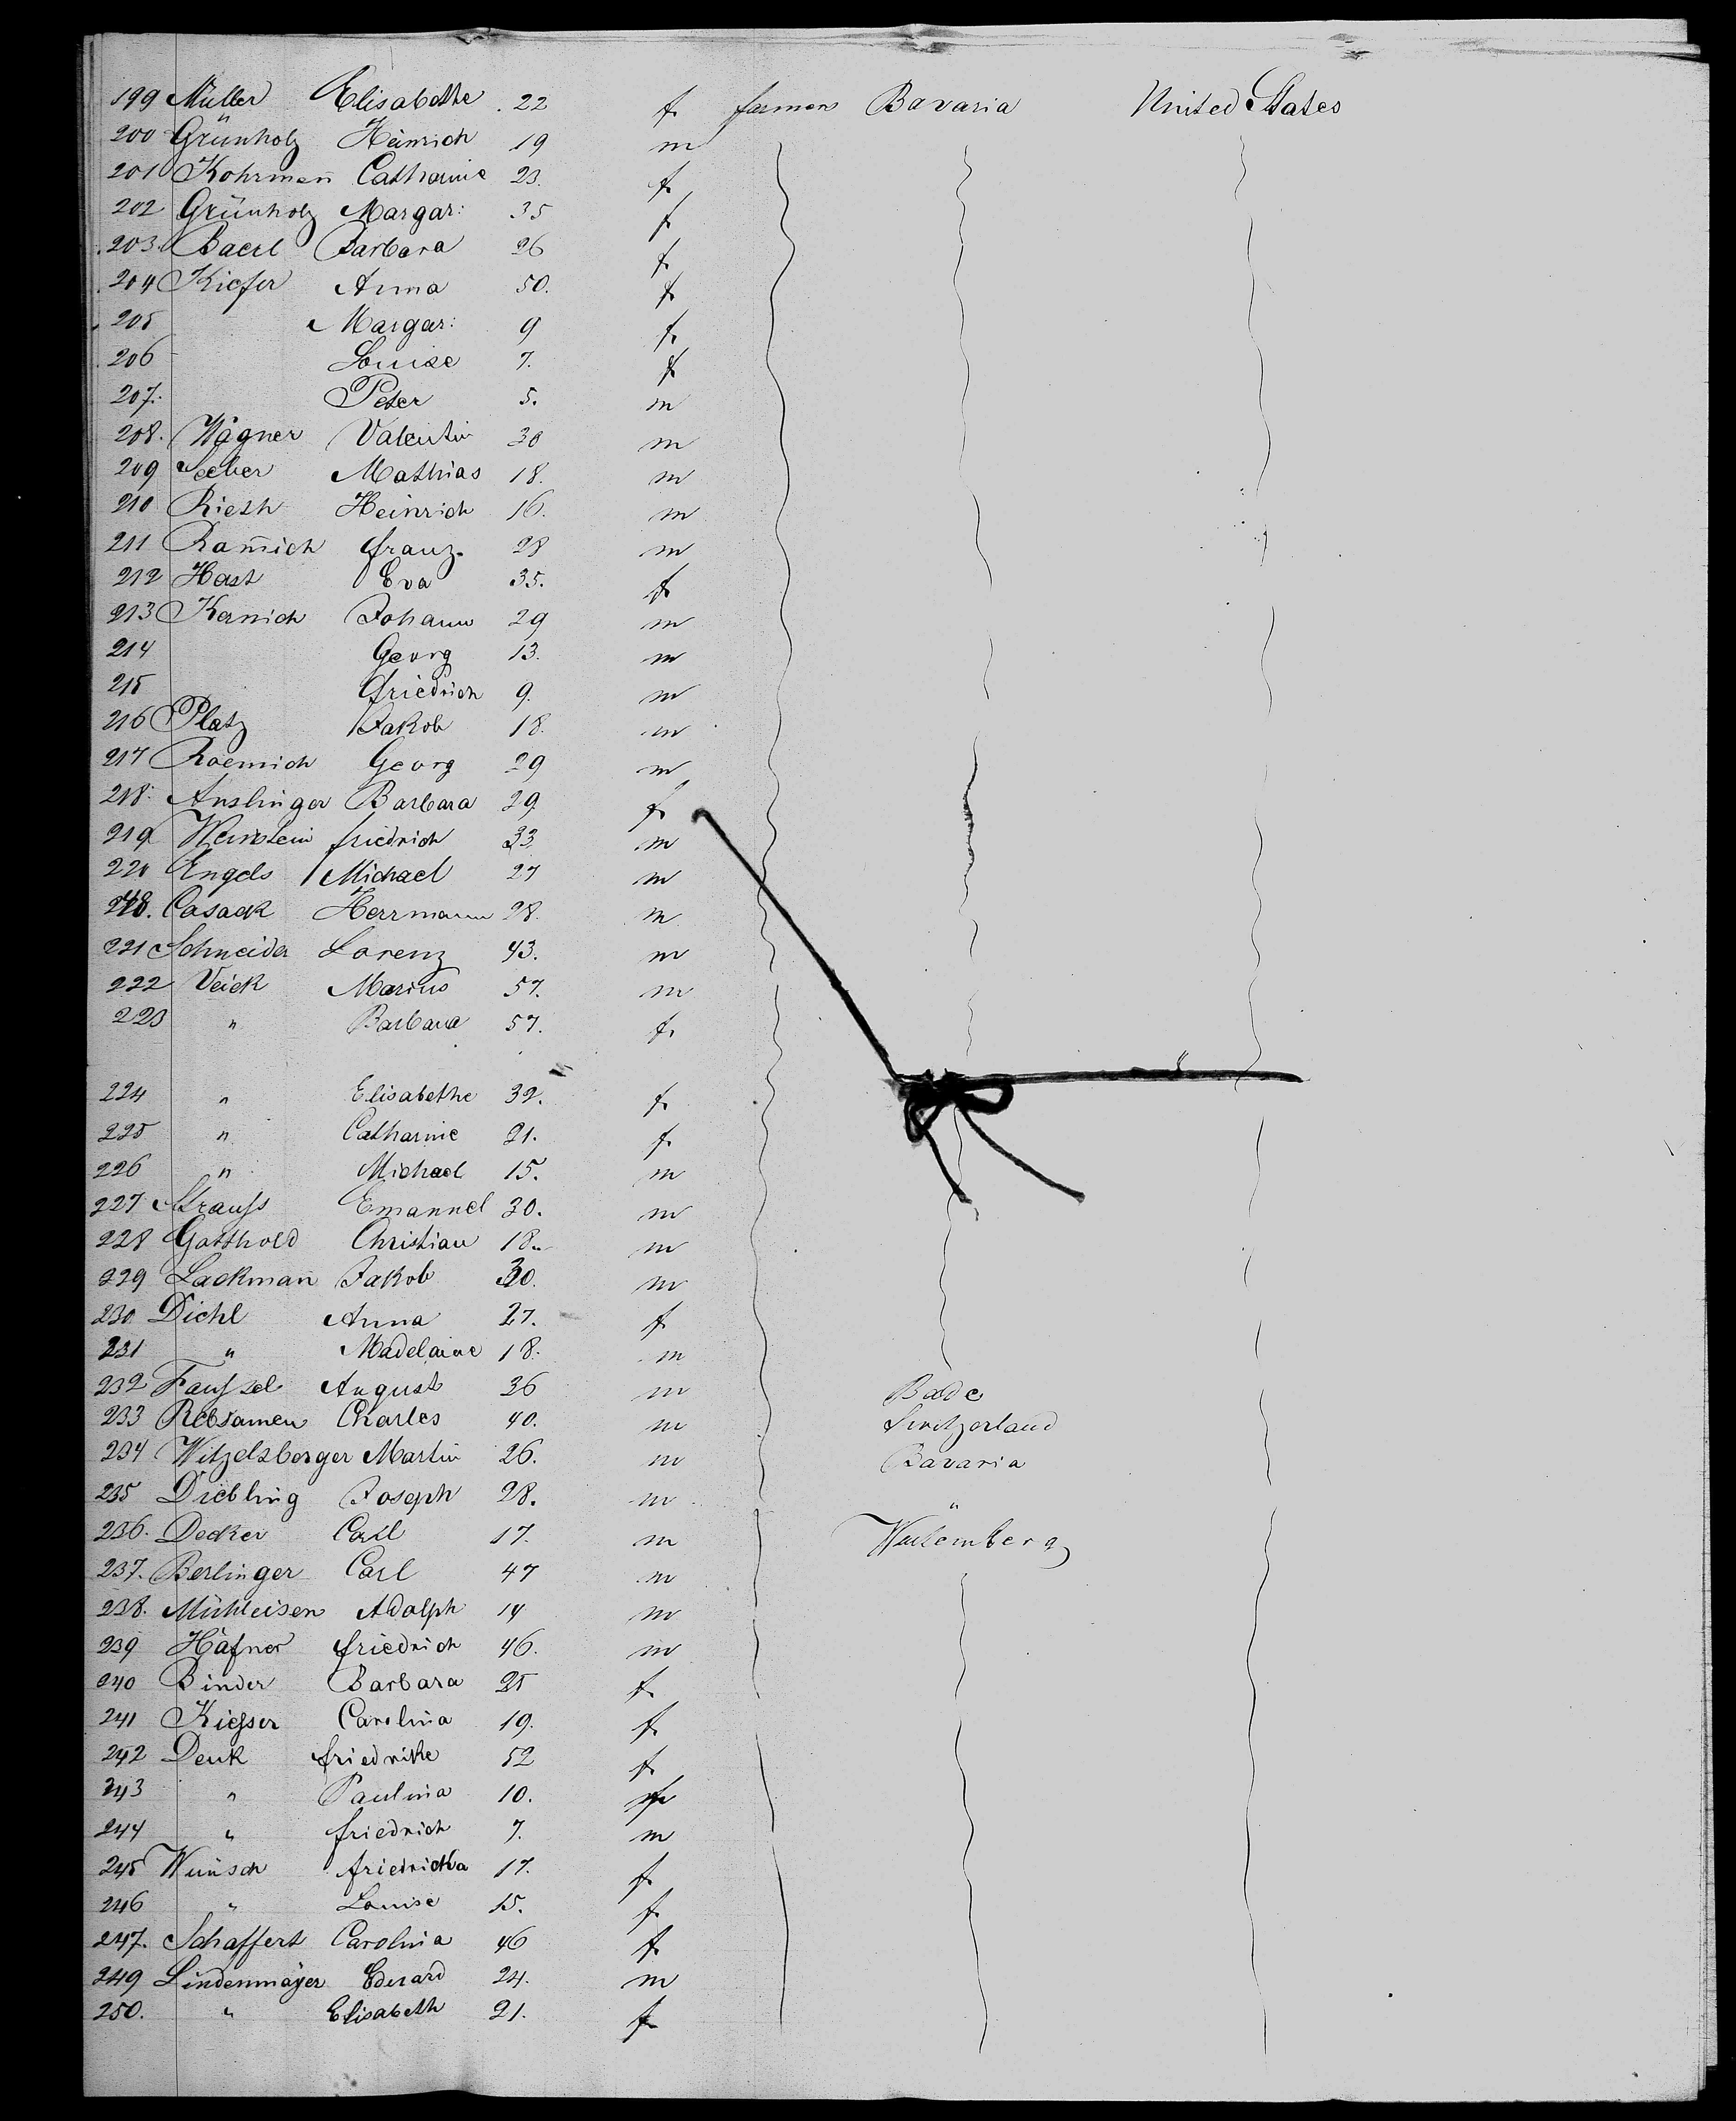 199 Müller Elisabethe 22 f. farmer Bavaria United States
200 Grünholz Heinrich 19 m
201 Kohrman̄ Catharine 23. f.
202 Grünholz Margar: 35 f.
203. Baerl Barbara 26 f.
204 Kiefer Anna 50. f.
205 Margar: 9 f.
206 Louise 7. f
207. Peter 5. m
208. Wagner Valentin 30 m
209 Seeber Mathias 18. m
210 Rieth Heinrich 16. m
211 Ram̄ich Franz. 28 m
212 Hast Eva 35. f.
213 Kernich Johann 29 m
214 Georg 13. m
215 Friedrich 9. m
216 Platz Jakob 18. m
217 Roemich Georg 29 m
218. Anslinger Barbara 29 f.
219 Weinstein Friedrich 33. m
220 Engels Michael 27 m
Casack Herrmann 28. m
221 Schneider Lorenz 43. m
222 Veick Marius 57. m
223 " Barbara 57. f.
224 " Elisabethe 32. f.
225 " Catharine 21. f.
226 " Michael 15. m
227 Strauss Emanuel 30. m
228 Gotthold Christian 18. m
229 Lackman̄ Jakob 30. m
230 Diehl Anna 27. f.
231 " Madelaine 18. m
232 Faussel August 36 m Bade
233 Rebsamen Charles 40. m Switzerland
234 Witzelsberger Martin 26. m Bavaria
235 Diebling Joseph 28. m "
236. Decker Carl 17. m Wurtemberg
237. Berlinger Carl 47 m
238. Mühleisen Adolph 14 m
239 Häfner Friedrich 46. m
240 Binder Barbara 25 f.
241 Kiesser Carolina 19. f.
242 Denk Friedrike 52 f.
243 " Paulina 10. f
244 " Friedrich 7. m
245 Wunsch Friedricka 17. f.
246 " Louise 15. f.
247. Schaffert Carolina 46 f.
249 Lindenmayer Eduard 24. m
250. " Elisabeth 21. f